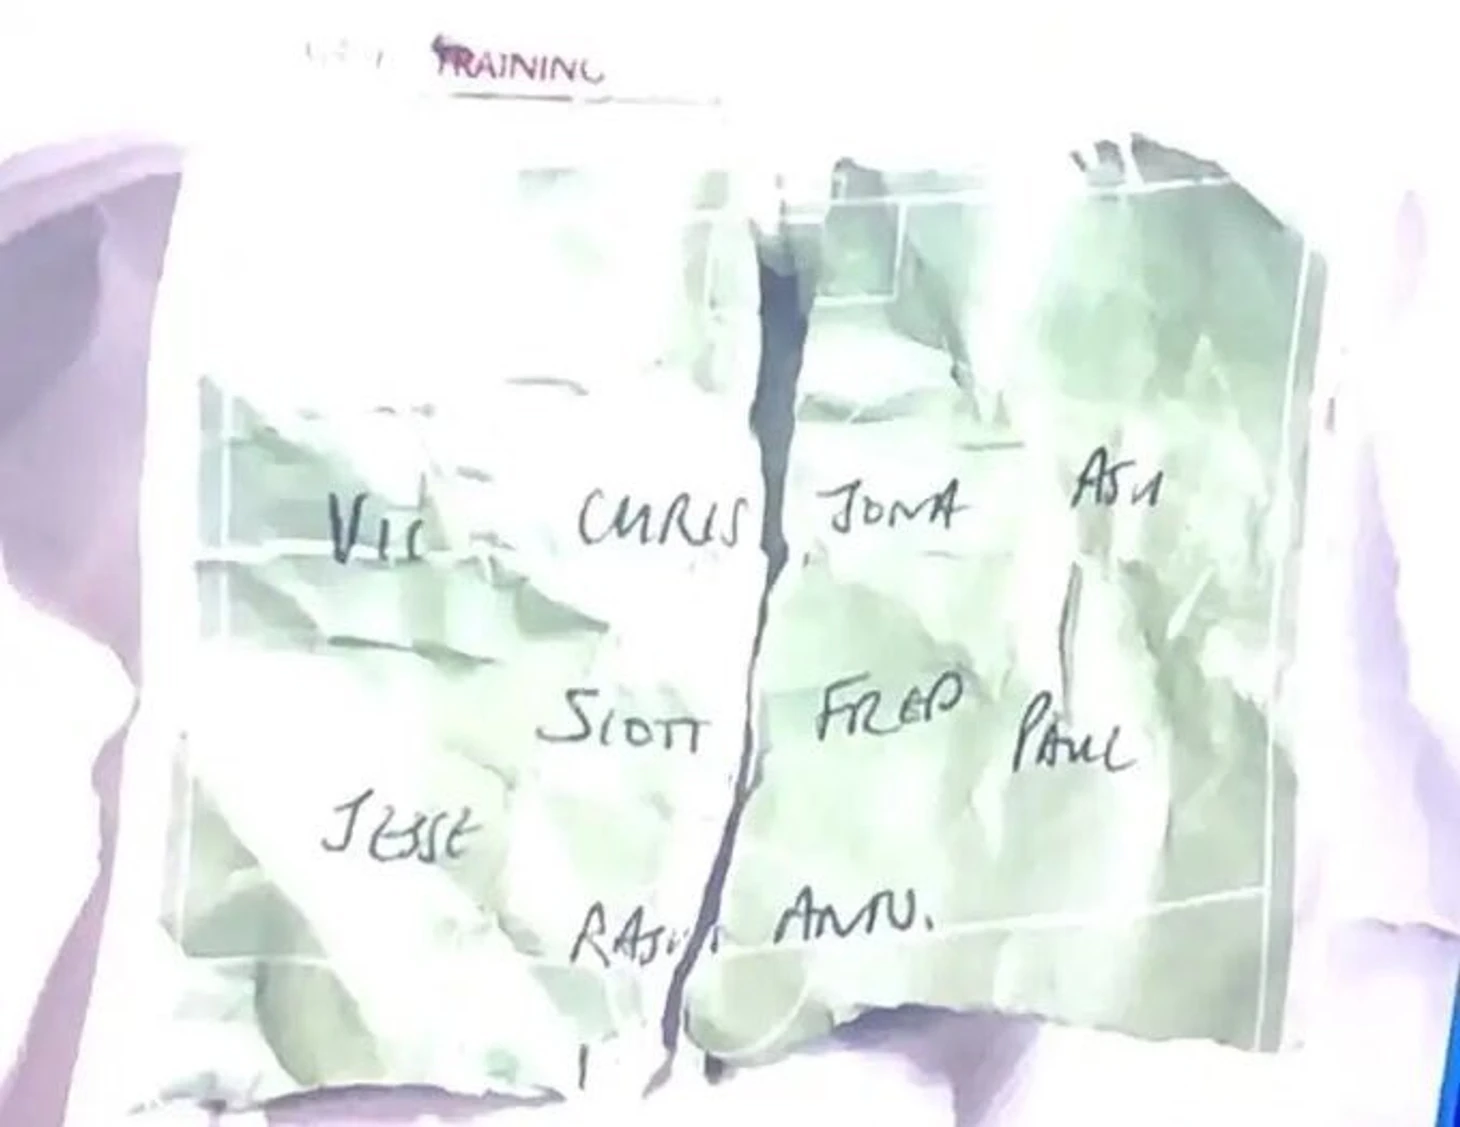 TRAINING
VIC CHRIS JONA ASH
SCOTT FRED PAUL
JESSE
ANN.